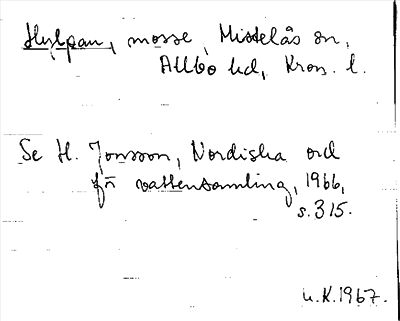 Hylpan, mosse, Mistelås sn,
Allbo hd, Kron. l.
Se H. Jonsson, Nordiska ord
för vattensamling, 1966,
s. 315.
u.K. 1967.